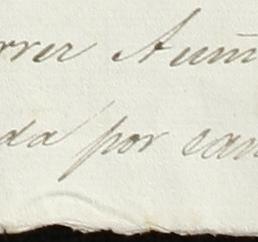 rrer Aum
da por can